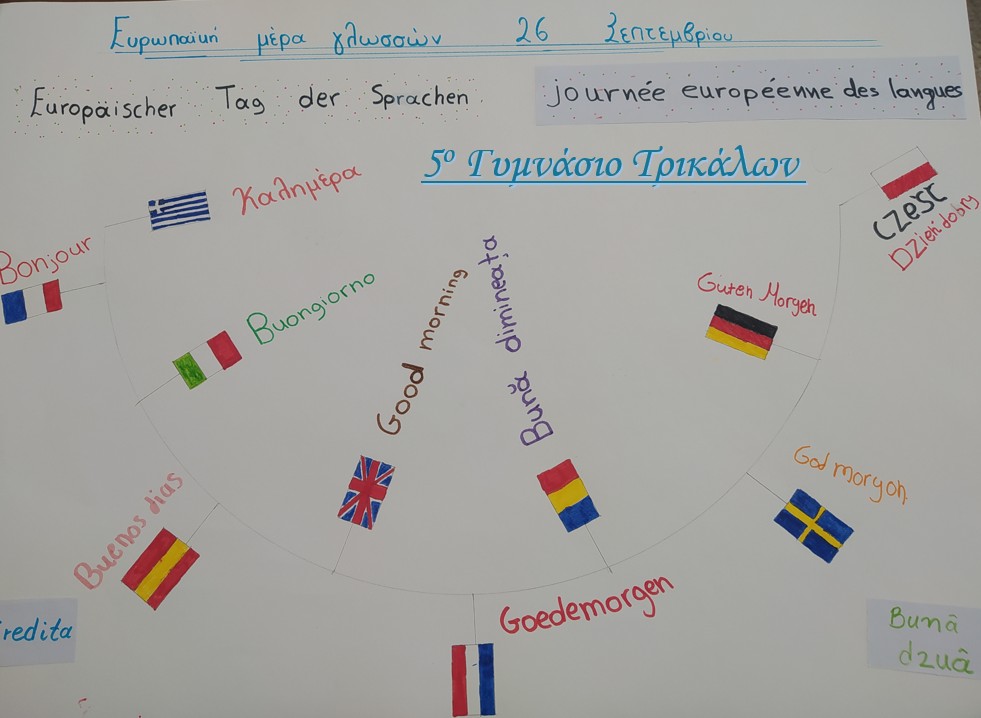 Ευρωπαϊκή μέρα γλωσσών 26 Σεπτεμβρίου
Europäischer Tag der Sprachen
journée européenne des langues
5º Γυμνάσιο Τρικάλων
Καλημέρα
Bonjour
Buongiorno
Good morning
Bună dimineața
Guten Morgen
Czesć
Dzień dobry
Buenos dias
God morgon
Goedemorgen
redita
Bunâ
dzuâ